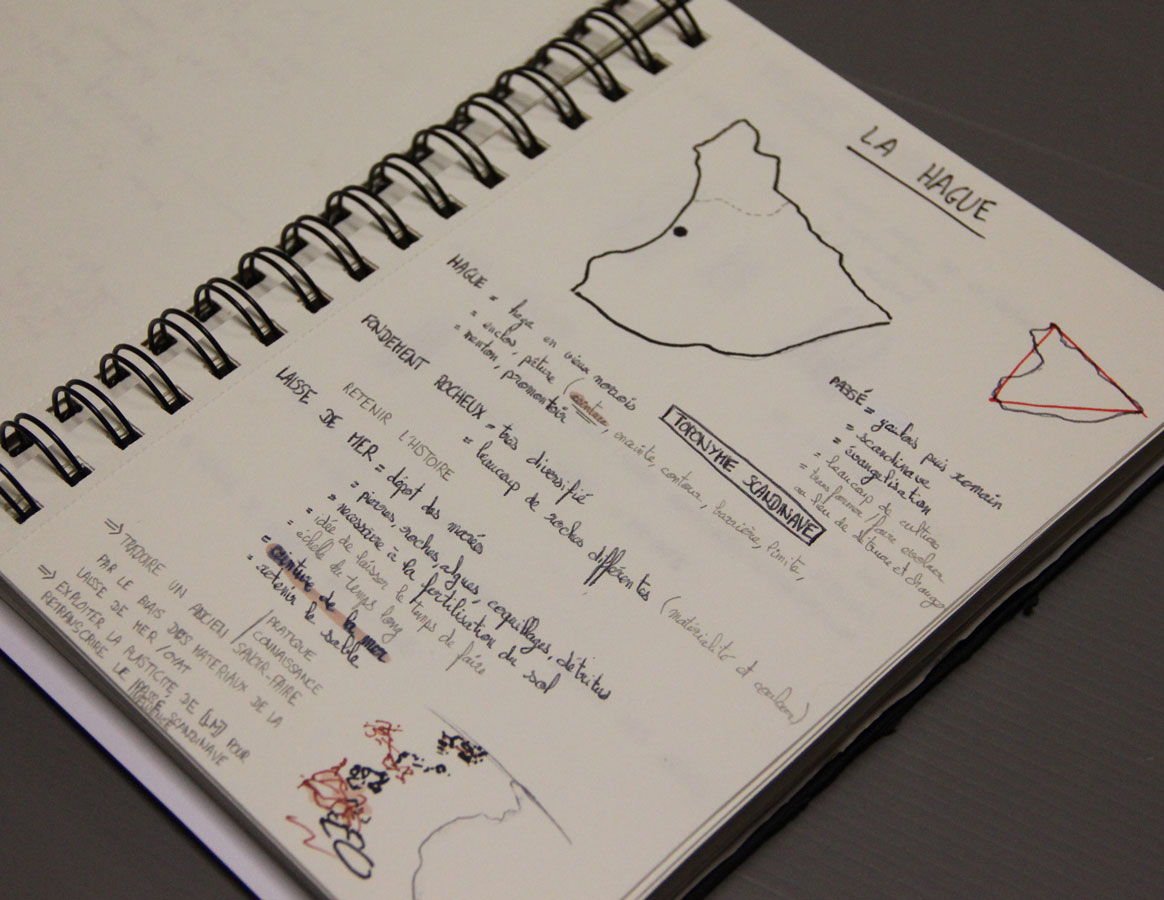 LA HAGUE
HAGUE = haga en vieux norrois
= enclos, pâture (ceinture, enceinte, contour, barrière, limite,
= menton, promontoir
TOPONYMIE SCANDINAVE
PASSÉ = gaulois puis romain
= scandinave
= évangelisation
= beaucoup de culture
= transformer / faire évoluer
au lieu de détruire et changer
FONDEMENT ROCHEUX = très diversifié
= beaucoup de roches différentes (matérialité et couleur)
RETENIR L'HISTOIRE
LAISSE DE MER = dépôt des marées
= pierres, roches, algues, coquillages, détritus
= necessaire à la fertilisation du sol
= idée de laisser le temps de faire
= échelle du temps long
= ceinture de la mer
= retenir le sable
⇒ TRADUIRE UN ANCIEN SAVOIR-FAIRE
/ PRATIQUE
/ CONNAISSANCE
PAR LE BIAIS DES MATERIAUX DE LA
LAISSE DE MER / OYAT
⇒ EXPLOITER LA PLASTICITE DE [LM] POUR
RETRANSCRIRE LE SCANDINAVE